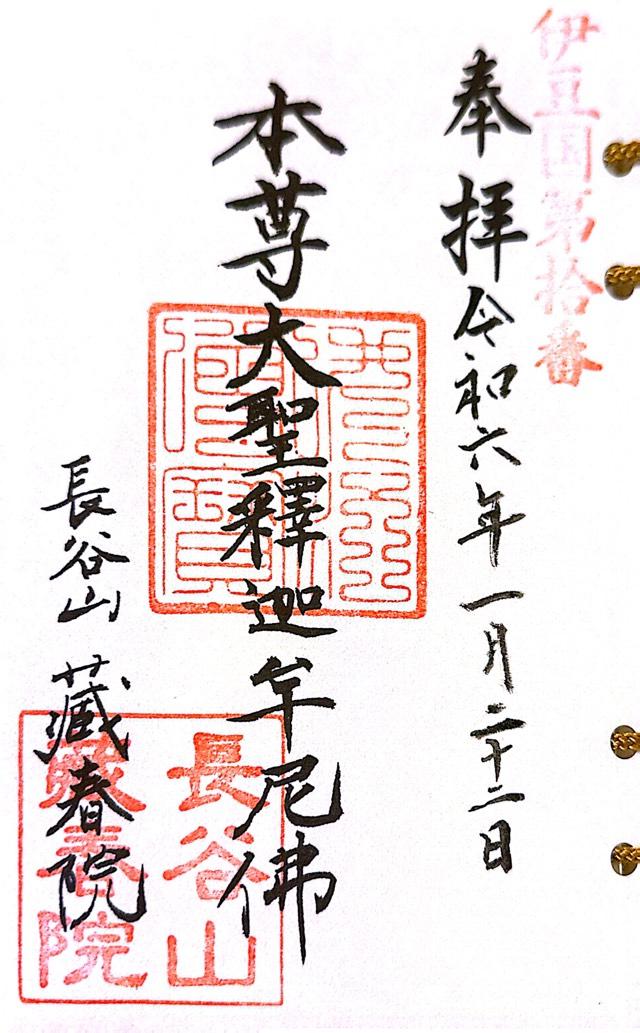 伊豆国第拾番
奉拝 令和六年一月二十二日
本尊大聖釋迦牟尼佛
佛法僧寳
長谷山 蔵春院
長谷山
蔵春院